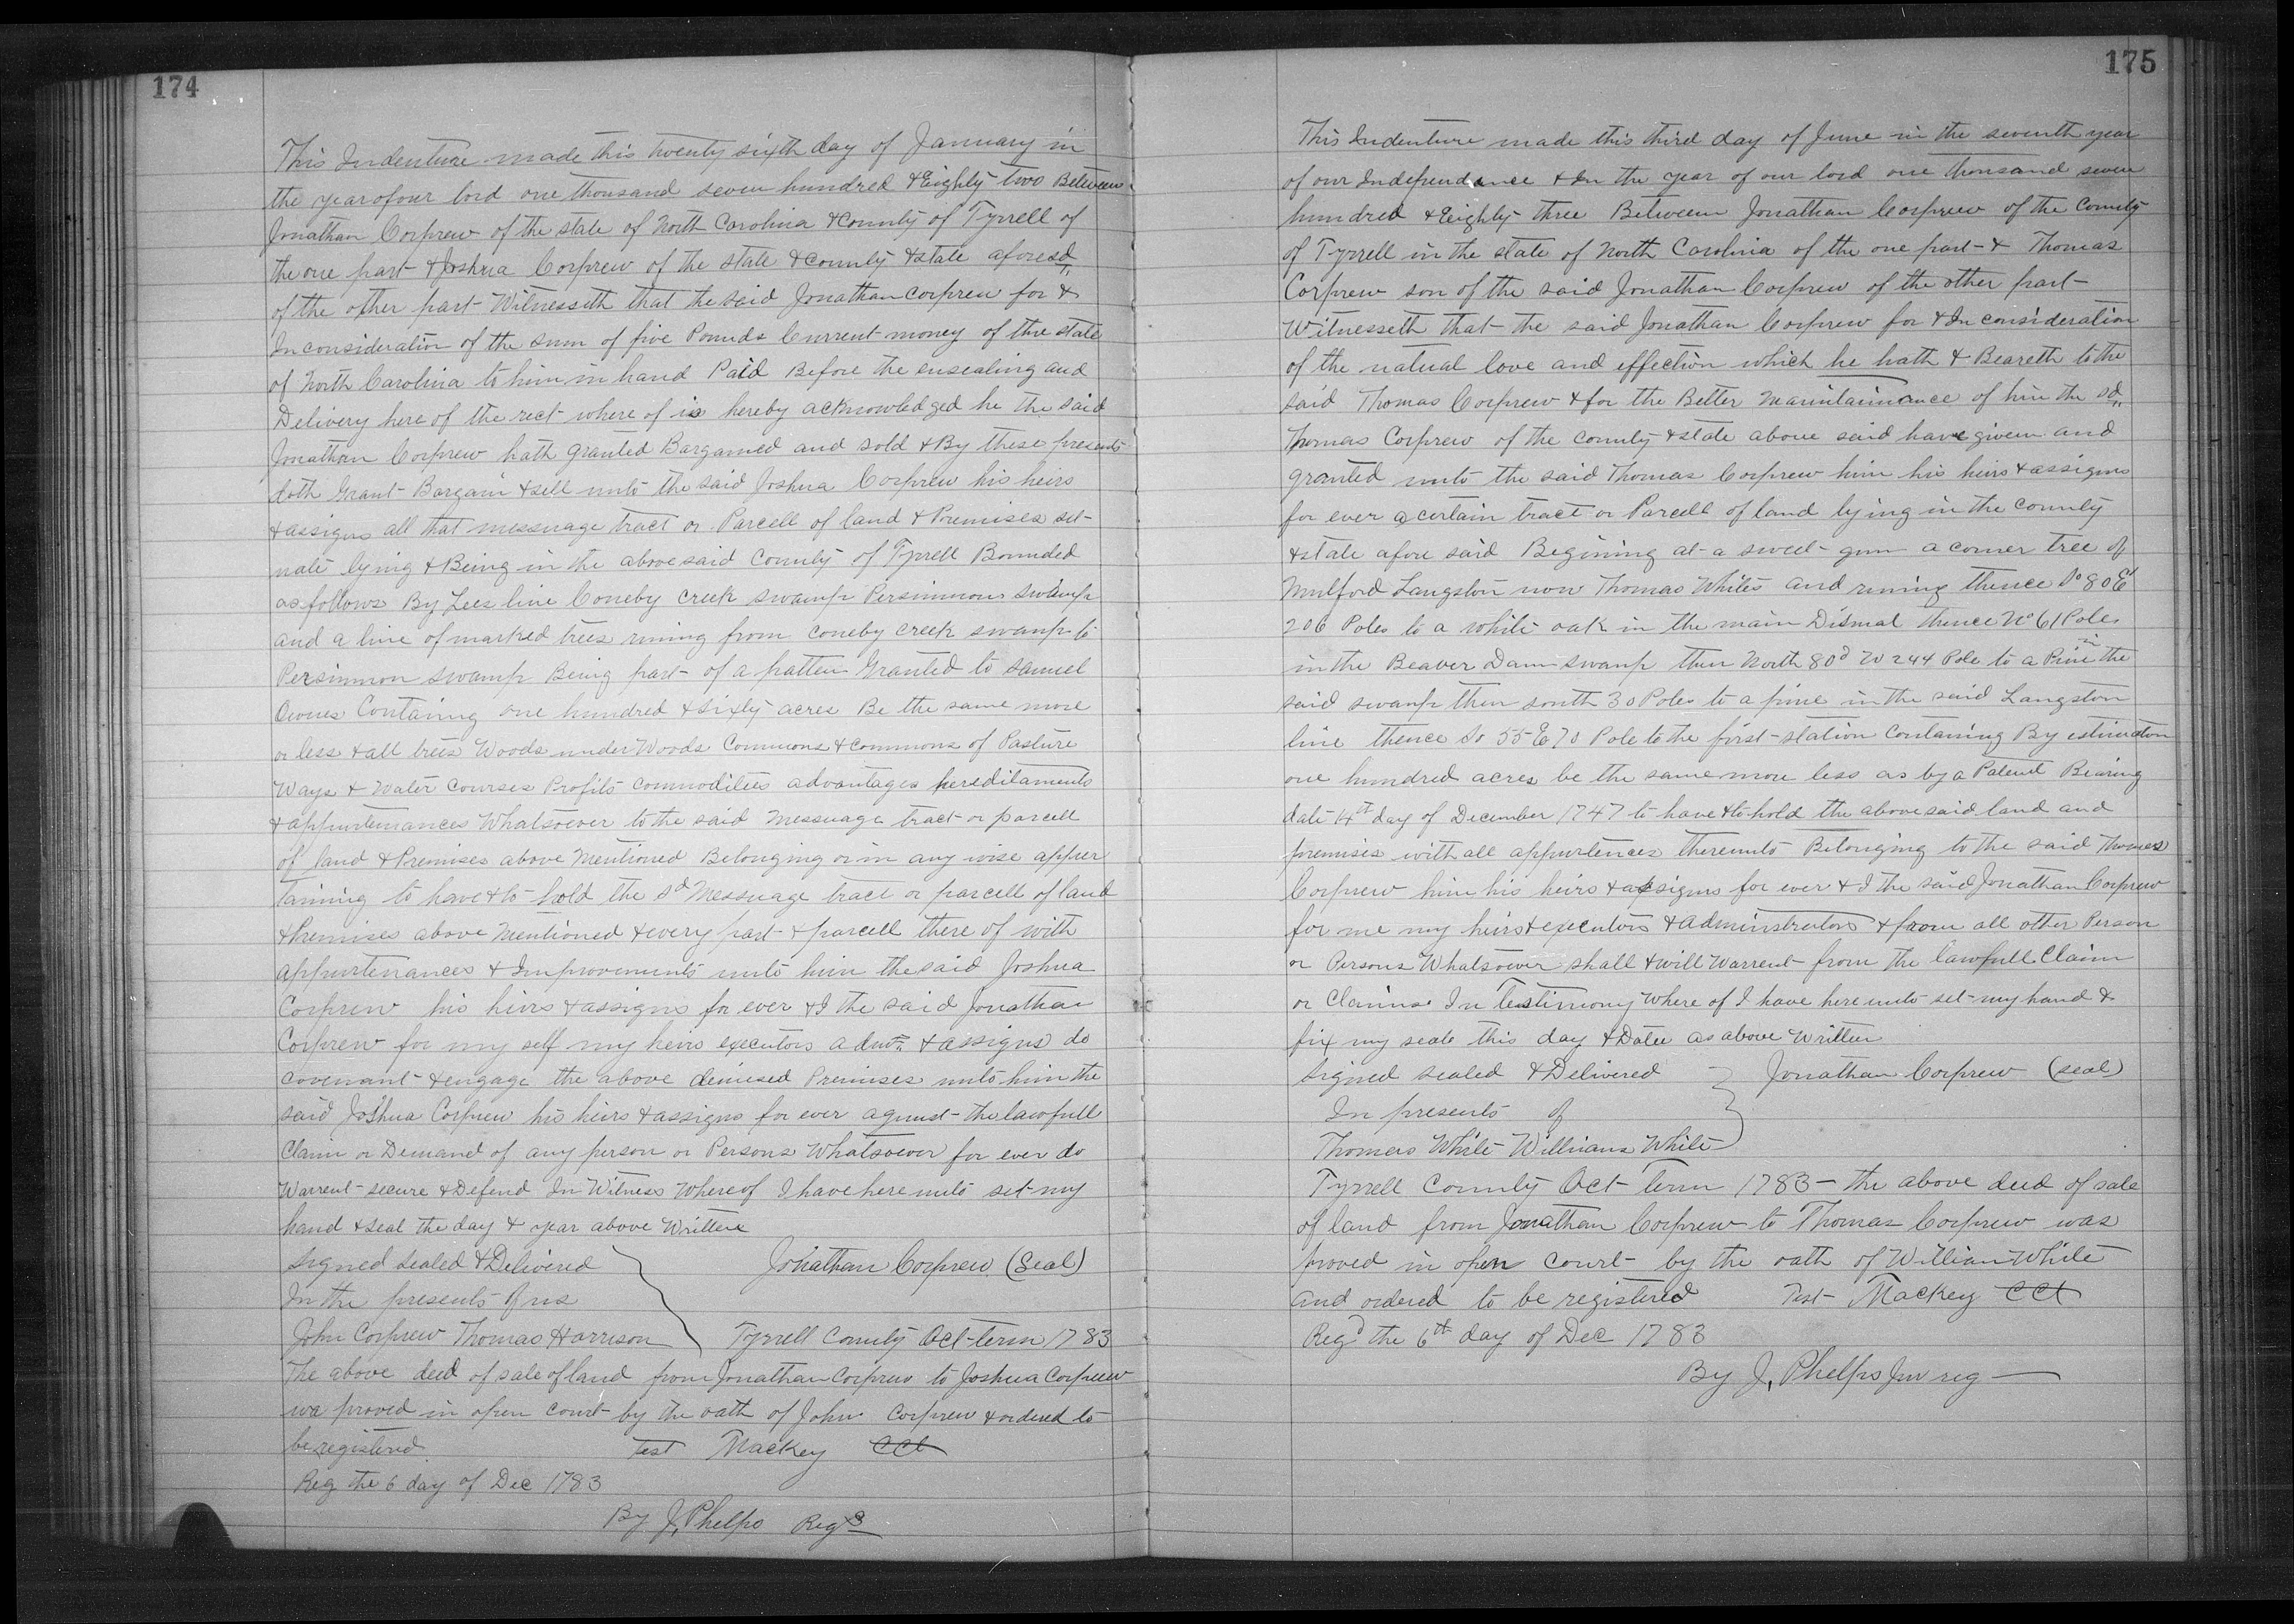 174
This Indenture made this twenty sixth day of January in
the year of our lord one thousand seven hundred & Eighty two Between
Jonathan Corprew of the state of North Carolina & County of Tyrrell of
the one part & Joshua Corprew of the state & County & state aforesd
of the other part Witnesseth that the said Jonathan Corprew for &
In consideration of the sum of five Pounds Current money of the state
of North Carolina to him in hand Paid Before the ensealing and
Delivery here of the rect where of is hereby acknowledged he the said
Jonathan Corprew hath granted Bargained and sold & By these presents
doth Grant Bargain & sell unto the said Joshua Corprew his heirs
& assigns all that messuage tract or Parcell of land & Premises sit-
uate lying & Being in the above said County of Tyrrell Bounded
as follows By Lees line Coneby Creek swamp Persimmon swamp
and a line of marked trees runing from Coneby creek swamp to
Persimmon swamp Being part of a patten Granted to Samuel
Owues Containg one hundred & sixty acres Be the same more
or less & all trees Woods under Woods Commons & commons of Pasture
Ways & Water Courses Profits Commodities advantages hereditaments
& appurtenances Whatsoever to the said Messuage tract or parcell
of land & Premises above Mentioned Belonging or in any wise apper
taining to have & to hold the sd Messuage tract or parcell of land
& Premises above Mentioned & every part & parcell there of with
appurtenances & Improvements unto him the said Joshua
Corprew his heirs & assigns for ever & I the said Jonathan
Corprew for my self my heirs executors admrs & assigns do
covenant & engage the above demised Premises unto him the
said Joshua Corprew his heirs & assigns for ever against the lawfull
Claim or Demand of any person or Persons Whatsoever for ever do
Warrent secure & Defend In Witness Whereof I have here unto set my
hand & seal the day & year above Written
signed sealed & Delivered Jonathan Corprew (Seal)
In the presents of us
John Corprew Thomas Harrison Tyrrell County Oct term 1783
The above deed of sale of land from Jonathan Corprew to Joshua Corprew
wa proved in open court by the oath of John Corprew & ordered to
be registered Test Mackey CCt
Reg the 6 day of Dec 1783
By J. Phelps Regs
175
This Indenture made this third day of June in the seventh year
of our Independance & In the year of our lord one thousand seven
hundred & Eighty three Between Jonathan Corprew of the County
of Tyrrell in the state of North Carolina of the one part & Thomas
Corprew son of the said Jonathan Corprew of the other part
Witnesseth that the said Jonathan Corprew for & In consideration
of the natual love and effection which he hath & Beareth to the
said Thomas Corprew & for the Better Maintainance of him the sd
Thomas Corprew of the County & state above said have givem and
granted unto the said Thomas Corprew him his heirs & assigns
for ever a certain tract or Parcell of land lying in the County
& state afore said Begining at a sweet gum a corner tree of
Mulford Langston now Thomas Whites and runing thence So 80 Et
206 Poles to a white oak in the main Dismal thence No 61 Poles
in the Beaver Dam swamp then North 80d W 244 Pole to a Pine in the
said swamp then south 30 Poles to a pine in the said Langston
line thence So 55 E 70 Pole to the first station Containg By estimation
one hundred acres be the same more less as by a Patent Bearing
date 4th day of December 1747 to have & to hold the above said land and
premises with all appurtences thereunto Belonging to the said Thomas
Corprew him his heirs & assigns for ever & I the said Jonathan Corprew
for me my heirs & executors & Adminstrators & from all other Person
or Persons Whatsoever shall & will Warrent from the lawfull Claim
or Claims In Testimony where of I have here unto set my hand &
fix my seale this day & Date as above Written
signed sealed & Delivered Jonathan Corprew (seal)
In presents of
Thomas White Williams White
Tyrrell County Oct term 1783 - the above deed of sale
of land from Jonathan Corprew to Thomas Corprew was
proved in open Court by the oath of William White
and ordered to be registered Test Mackey CCt
Regd the 6th day of Dec 1783
By J. Phelps Jur reg